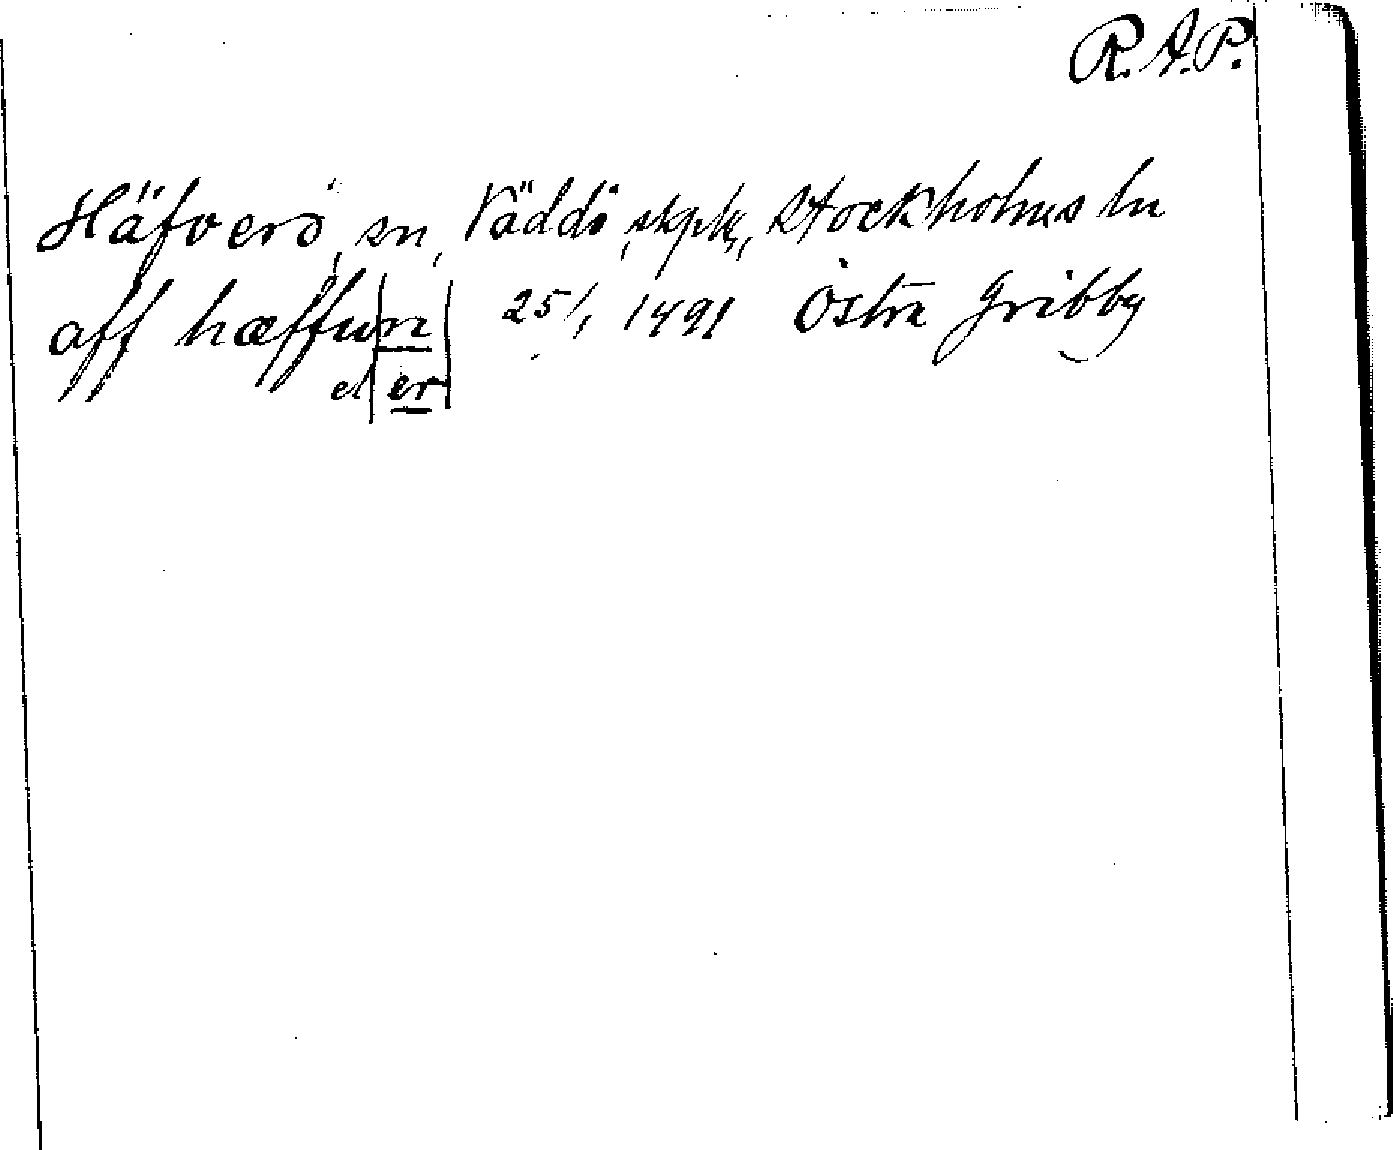 R.A.P.
Häfverö, sn, Väddö, skplg, Stockholms ln
aff hæffu|rn| 25/1 1491 Östra Gribby
el |er|